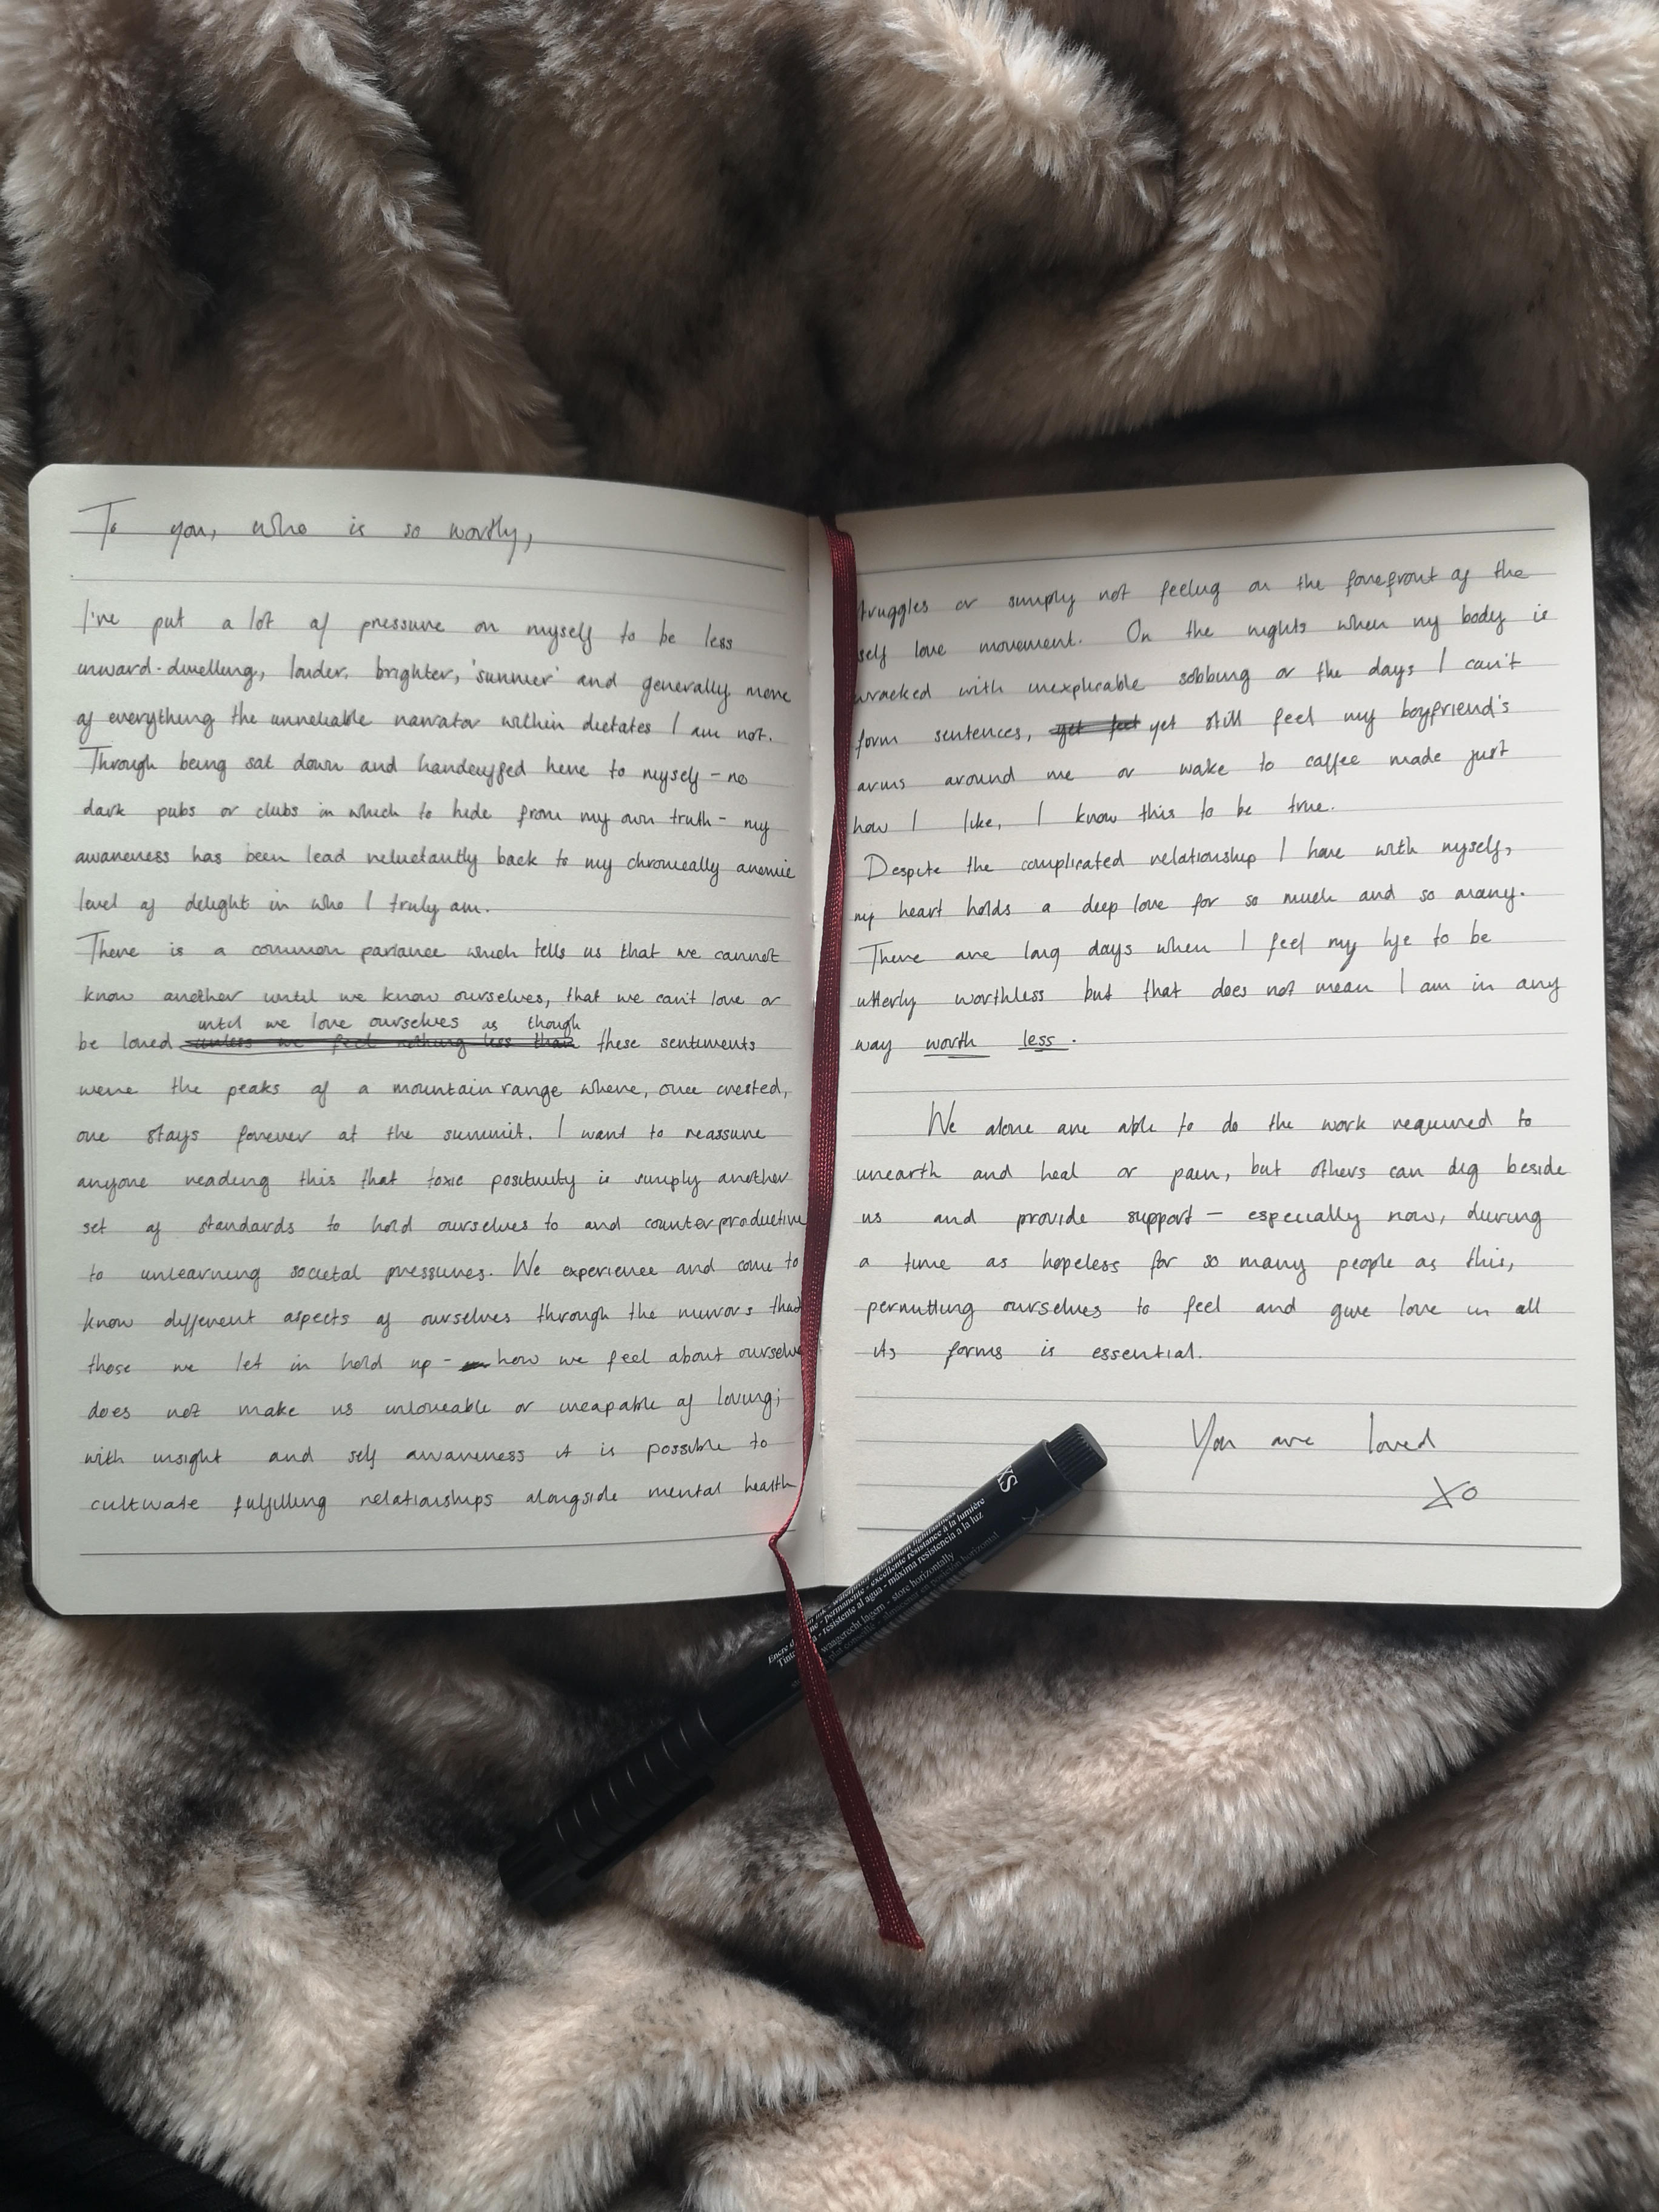 To you, who is so worthy,
I've put a lot of pressure on myself to be less
inward-dwelling, louder, brighter, 'sunnier' and generally more
of everything the unreliable narrator within dictates I am not.
Through being sat down and handcuffed here to myself - no
dark pubs or clubs in which to hide from my own truth - my
awareness has been lead reluctantly back to my chronically anemic
level of delight in who I truly am.
There is a common parlance which tells us that we cannot
know another until we know ourselves, that we can't love or
until we love ourselves as though
be loved unless we feel nothing less than these sentiments
were the peaks of a mountain range where, once crested,
one stays forever at the summit. I want to reassure
anyone reading this that toxic positivity is simply another
set of standards to hold ourselves to and counterproductive
to unlearning societal pressures. We experience and come to
know different aspects of ourselves through the mirrors that
those we let in hold up - how we feel about ourselve
does not make us unloveable or incapable of loving;
with insight and self awareness it is possible to
cultivate fulfilling relationships alongside mental health
truggles or simply not feeling on the forefront of the
self love movement. On the nights when my body is
wracked with inexplicable sobbing or the days I can't
form sentences, yet feel yet still feel my boyfriend's
arms around me or wake to coffee made just
how I like, I know this to be true.
Despite the complicated relationship I have with myself,
my heart holds a deep love for so much and so many.
There are long days when I feel my life to be
utterly worthless but that does not mean I am in any
way worth less.
We alone are able to do the work required to
unearth and heal or pain, but others can dig beside
us and provide support - especially now, during
a time as hopeless for so many people as this,
permitting ourselves to feel and give love in all
its forms is essential.
You are loved
xo
XS
maximum lightfastness
Encre de - permanente - excellente résistance à la lumière
Tinta - resistente al agua - máxima resistencia a la luz
waagerecht lagern - store horizontally
à plat conseillé - almacenar en posición horizontal